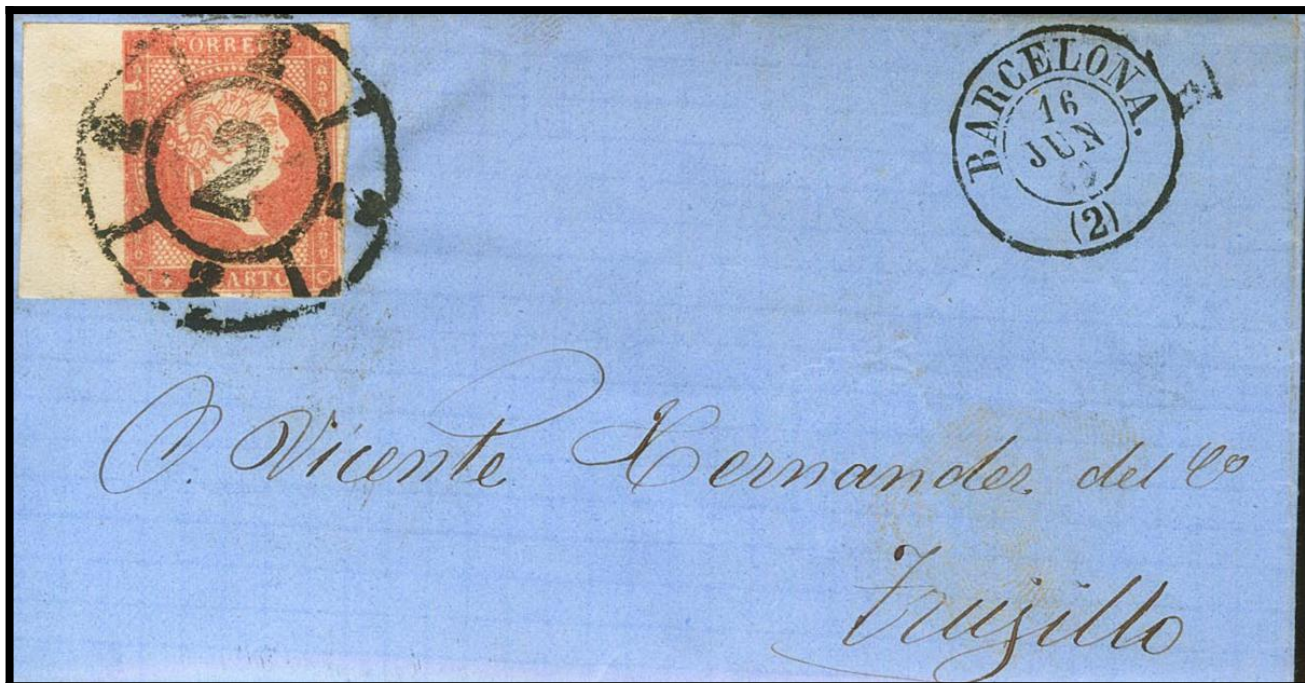 CORREOS
2
BARCELONA.
16
JUN
(2)
D. Vicente Hernandez del Co
Trugillo